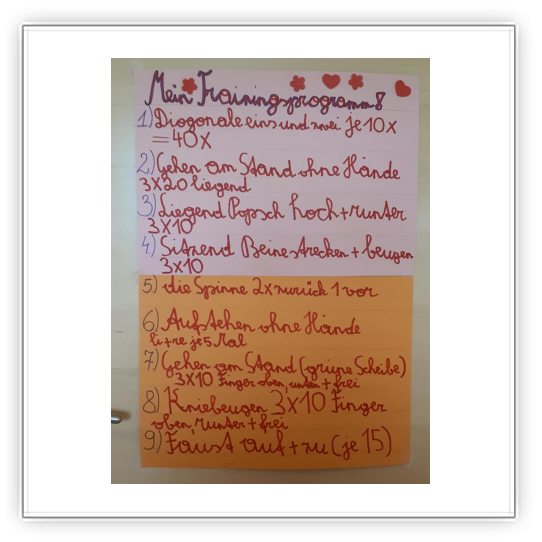 Mein Trainingsprogramm 8
1) Diagonale eins und zwei je 10x
= 40x
2) Gehen am Stand ohne Hände
3x20 liegend
3) Liegend Popsch hoch + runter
3x10
4) Sitzend Beine strecken + beugen
3x10
5) die Spinne 2x zurück 1 vor
6) Aufstehen ohne Hände
li + re je 5 Mal
7) Gehen am Stand (grüne Scheibe)
3x10 Finger oben, unten + frei
8) Kniebeugen 3x10 Finger
oben, runter + frei
9) Faust auf + zu (je 15)